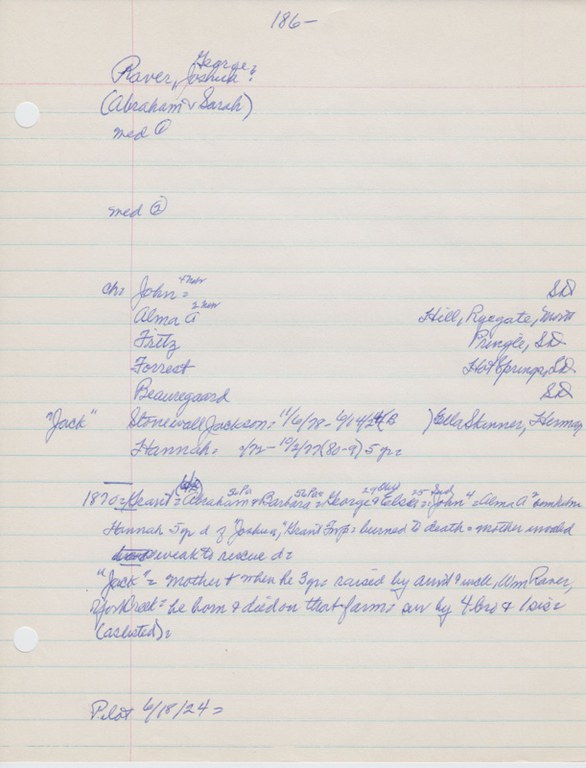 186-
George?
Raver, Joshua?
(Abraham & Sarah)
med ①
med ②
ch: John = SD
Alma A Hill, Ryegate, Mont
Fritz Pringle, SD
Forrest Hot Springs, SD
Beauregard SD
"Jack" Stonewall Jackson = 11/6/78 - 6/14/24 (B ) Ella Skinner, Herman
Hannah = /72 - 10/2/77 (80-9) 5 yr =
1870 = Grant = Abraham & Barbara = George & Elsie = John = Alma A
Hannah 5 yr d of "Joshua," Grant Twp = burned to death = mother
weak to rescue d =
"Jack" = mother & when he 3 yrs raised by aunt & uncle, Wm Raver,
Creek = he born & died on that farm = sur by 4 bro & 1 sis =
(as listed) =
Pilot 6/18/24 =